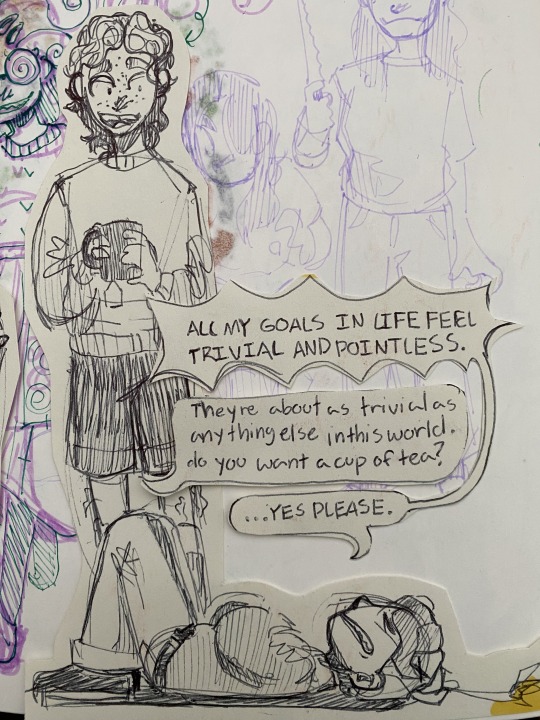 ALL MY GOALS IN LIFE FEEL
TRIVIAL AND POINTLESS.
Theyre about as trivial as
anything else in this world.
do you want a cup of tea?
...YES PLEASE.